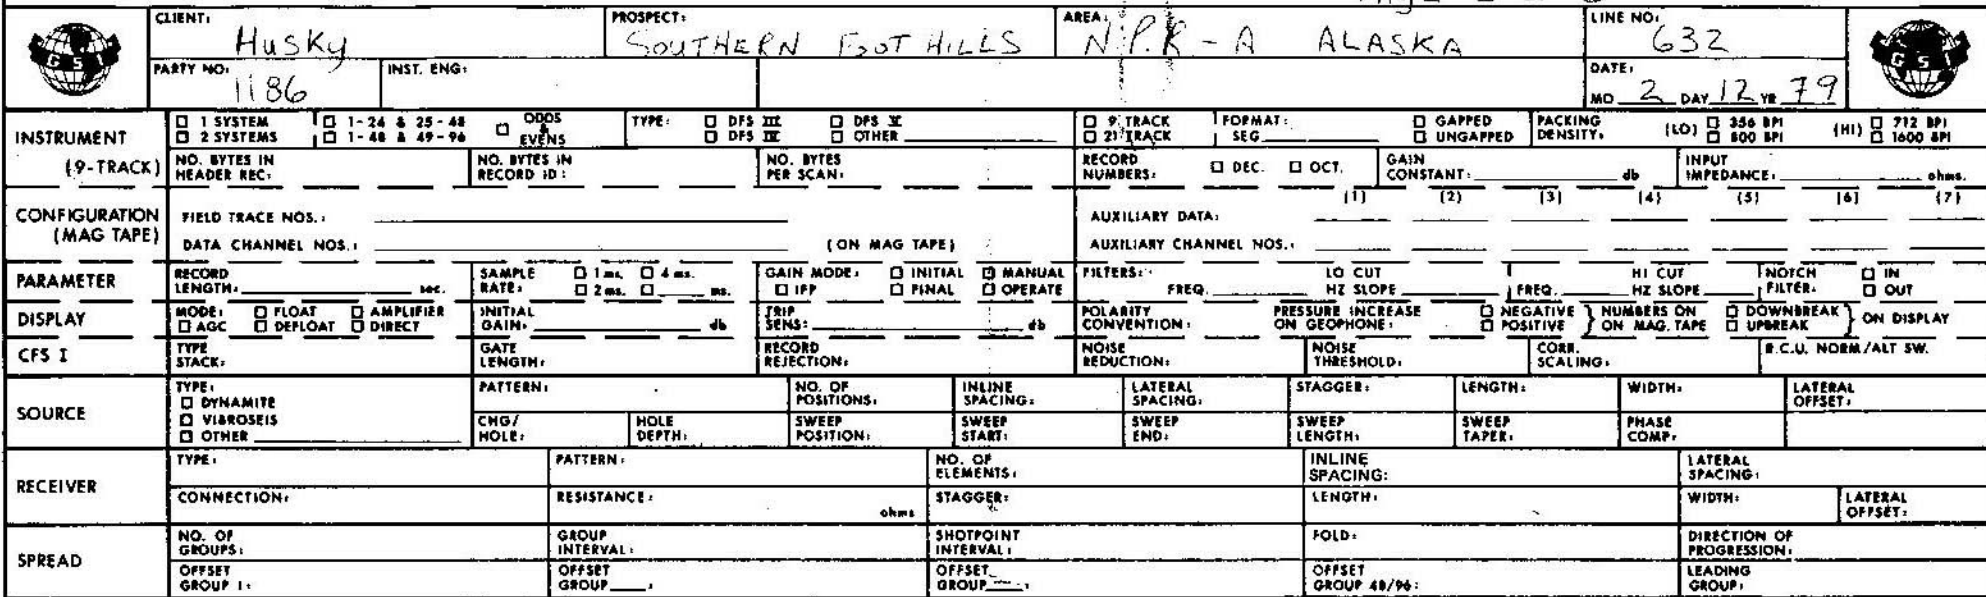 CLIENT: Husky PROSPECT: SOUTHERN FOOTHILLS AREA: N.P.R-A ALASKA LINE NO: 632
GSI GSI
PARTY NO: 1186 INST. ENG: DATE: MO 2 DAY 12 YR 79
INSTRUMENT (9-TRACK)
□ 1 SYSTEM □ 1-24 & 25-48 □ ODDS & EVENS TYPE: □ DFS III □ DFS V □ 9 TRACK FORMAT: □ GAPPED PACKING DENSITY: (LO) □ 356 BPI (HI) □ 712 BPI
□ 2 SYSTEMS □ 1-48 & 49-96 □ DFS IV □ OTHER □ 21 TRACK SEG □ UNGAPPED □ 800 BPI □ 1600 BPI
NO. BYTES IN HEADER REC: NO. BYTES IN RECORD ID: NO. BYTES PER SCAN: RECORD NUMBERS: □ DEC. □ OCT. GAIN CONSTANT: db INPUT IMPEDANCE: ohms.
CONFIGURATION (MAG TAPE)
(1) (2) (3) (4) (5) (6) (7)
FIELD TRACE NOS.: AUXILIARY DATA:
DATA CHANNEL NOS.: (ON MAG TAPE) AUXILIARY CHANNEL NOS.:
PARAMETER RECORD LENGTH: sec. SAMPLE RATE: □ 1 ms. □ 4 ms. □ 2 ms. □ ms. GAIN MODE: □ INITIAL □ MANUAL □ IFP □ FINAL □ OPERATE FILTERS: FREQ. LO CUT HZ SLOPE FREQ. HI CUT HZ SLOPE NOTCH FILTER: □ IN □ OUT
DISPLAY MODE: □ FLOAT □ AMPLIFIER □ AGC □ DEFLOAT □ DIRECT INITIAL GAIN: db TRIP SENS: db POLARITY CONVENTION: PRESSURE INCREASE ON GEOPHONE: □ NEGATIVE □ POSITIVE } NUMBERS ON ON MAG. TAPE □ DOWNBREAK □ UPBREAK } ON DISPLAY
CFS I TYPE STACK: GATE LENGTH: RECORD REJECTION: NOISE REDUCTION: NOISE THRESHOLD: CORR. SCALING: R.C.U. NORM/ALT SW.
SOURCE TYPE: □ DYNAMITE □ VIBROSEIS □ OTHER
PATTERN: NO. OF POSITIONS: INLINE SPACING: LATERAL SPACING: STAGGER: LENGTH: WIDTH: LATERAL OFFSET:
CHG/HOLE: HOLE DEPTH: SWEEP POSITION: SWEEP START: SWEEP END: SWEEP LENGTH: SWEEP TAPER: PHASE COMP:
RECEIVER TYPE: PATTERN: NO. OF ELEMENTS: INLINE SPACING: LATERAL SPACING:
CONNECTION: RESISTANCE: ohms STAGGER: LENGTH: WIDTH: LATERAL OFFSET:
SPREAD NO. OF GROUPS: GROUP INTERVAL: SHOTPOINT INTERVAL: FOLD: DIRECTION OF PROGRESSION:
OFFSET GROUP 1: OFFSET GROUP : OFFSET GROUP : OFFSET GROUP 48/96: LEADING GROUP: